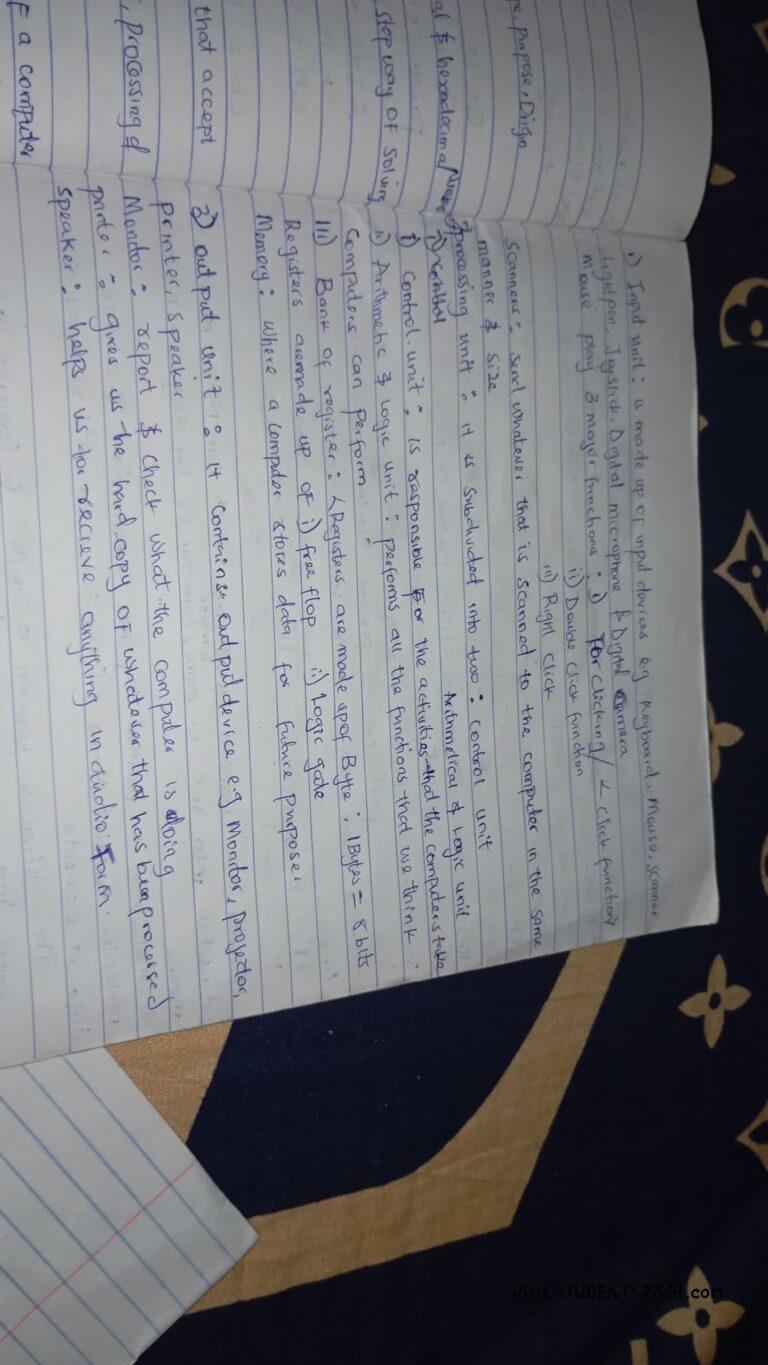 pe, purpose, Origin
al & hexadecimal
step way of solving
that accept
, processing d
F a computer
1) Input unit: is made up of input devices e.g keyboard, mouse, scanner
Lightpen, Joystick, Digital microphone & Digital camera
Mouse play 3 major functions: i) For clicking / < click function
ii) Double click function
iii) Right click
Scanners: Send whatever that is scanned to the computer in the same
manner & size
2) processing unit: it is subdivided into two: control unit
Arithmetical & Logic unit
i) control
i) Control unit: is responsible for the activities that the computers take
ii) Arithmetic & Logic unit: performs all the functions that we think
Computers can perform
III) Bank of register: < Registers are made up of Byte; 1Bytes = 8 bits
Registers aremade up of i) free flop ii) Logic gate
Memory: Where a computer stores data for future purposes
3) output unit: it contains output device e.g Monitor, projector,
printer, speaker
Monitor: report & check what the computer is doing
printer: gives us the hard copy of whatever that has been processed
speaker: helps us to recieve anything in audio form.
Visit STUDENTSDASH.com